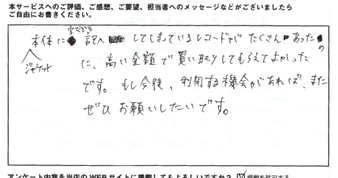 本サービスへのご評価、ご感想、ご要望、担当者へのメッセージなどがございましたら
ご自由にお書きください。
本体に 記入してしまっているレコードが たくさん あったの
ジャケット
に、高い金額で買い取りしてもらえてよかった
です。もし今後、利用する機会があれば、また
ぜひ お願いしたいです。
アンケート内容を当店のWEBサイトに掲載してもよろしいですか？